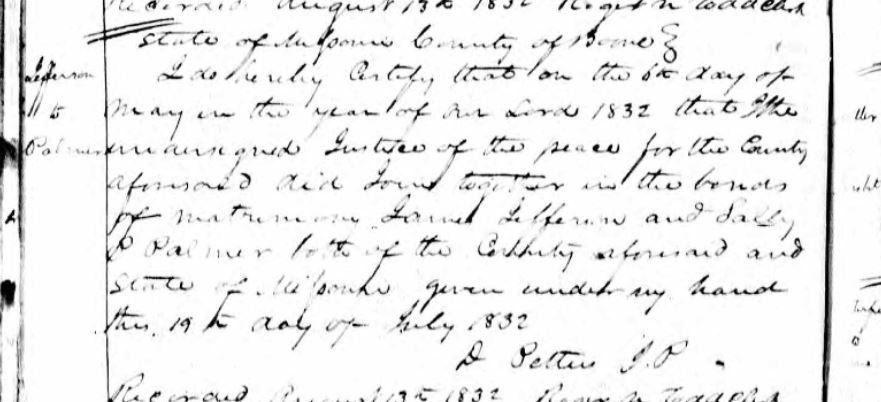 Recorded August 13th 1832 Roger N Todd clk
State of Missouri County of Boone
Jefferson
to
Palmer
I do hereby Certify that on the 6th day of
May in the year of our Lord 1832 that I the
undersigned Justice of the peace for the County
aforesaid did Join together in the bonds
of matrimony James Jefferson and Sally
P Palmer both of the County aforesaid and
State of Missouri given under my hand
this 19th day of July 1832
D Pettus J.P
Recorded August 13th 1832 Roger N Todd clk